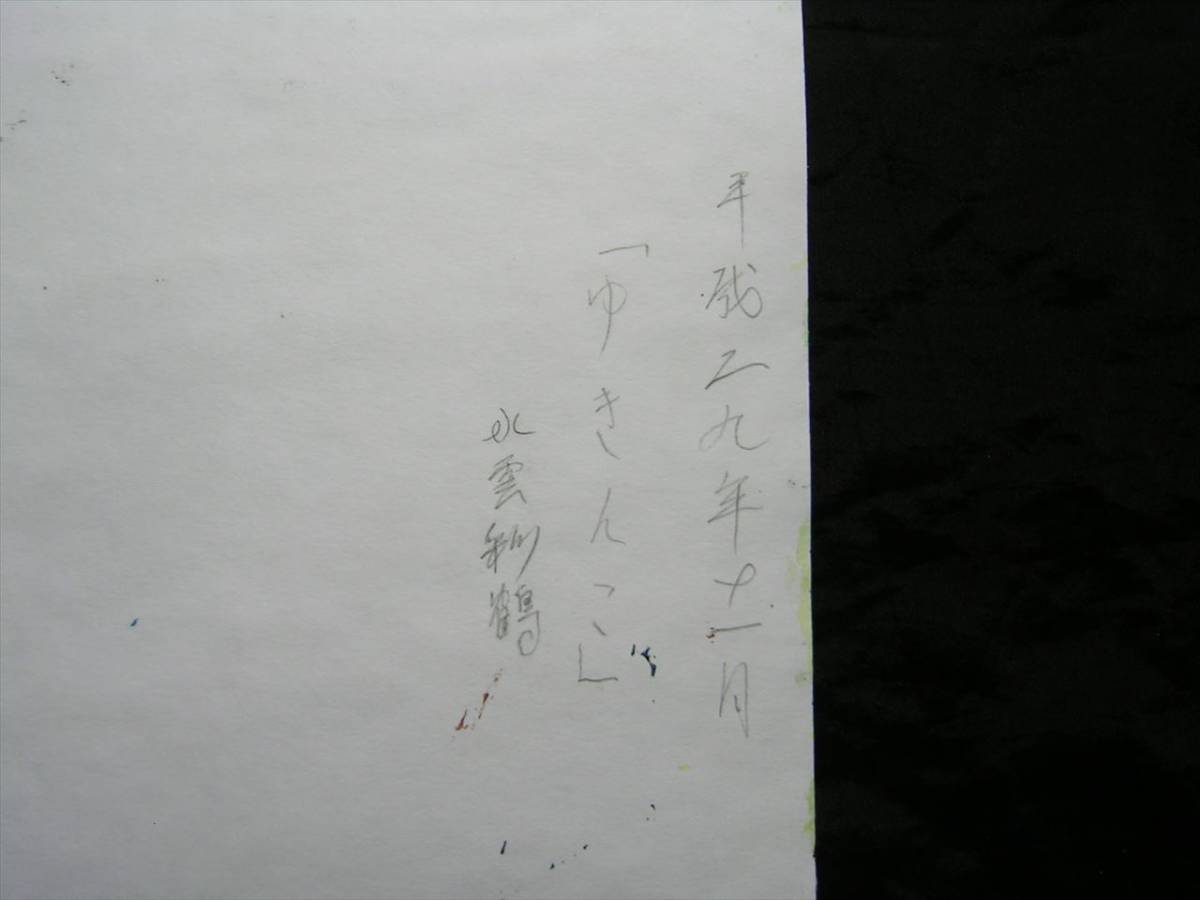 平成二九年十一月
「ゆきんこ」
水雲
鶴